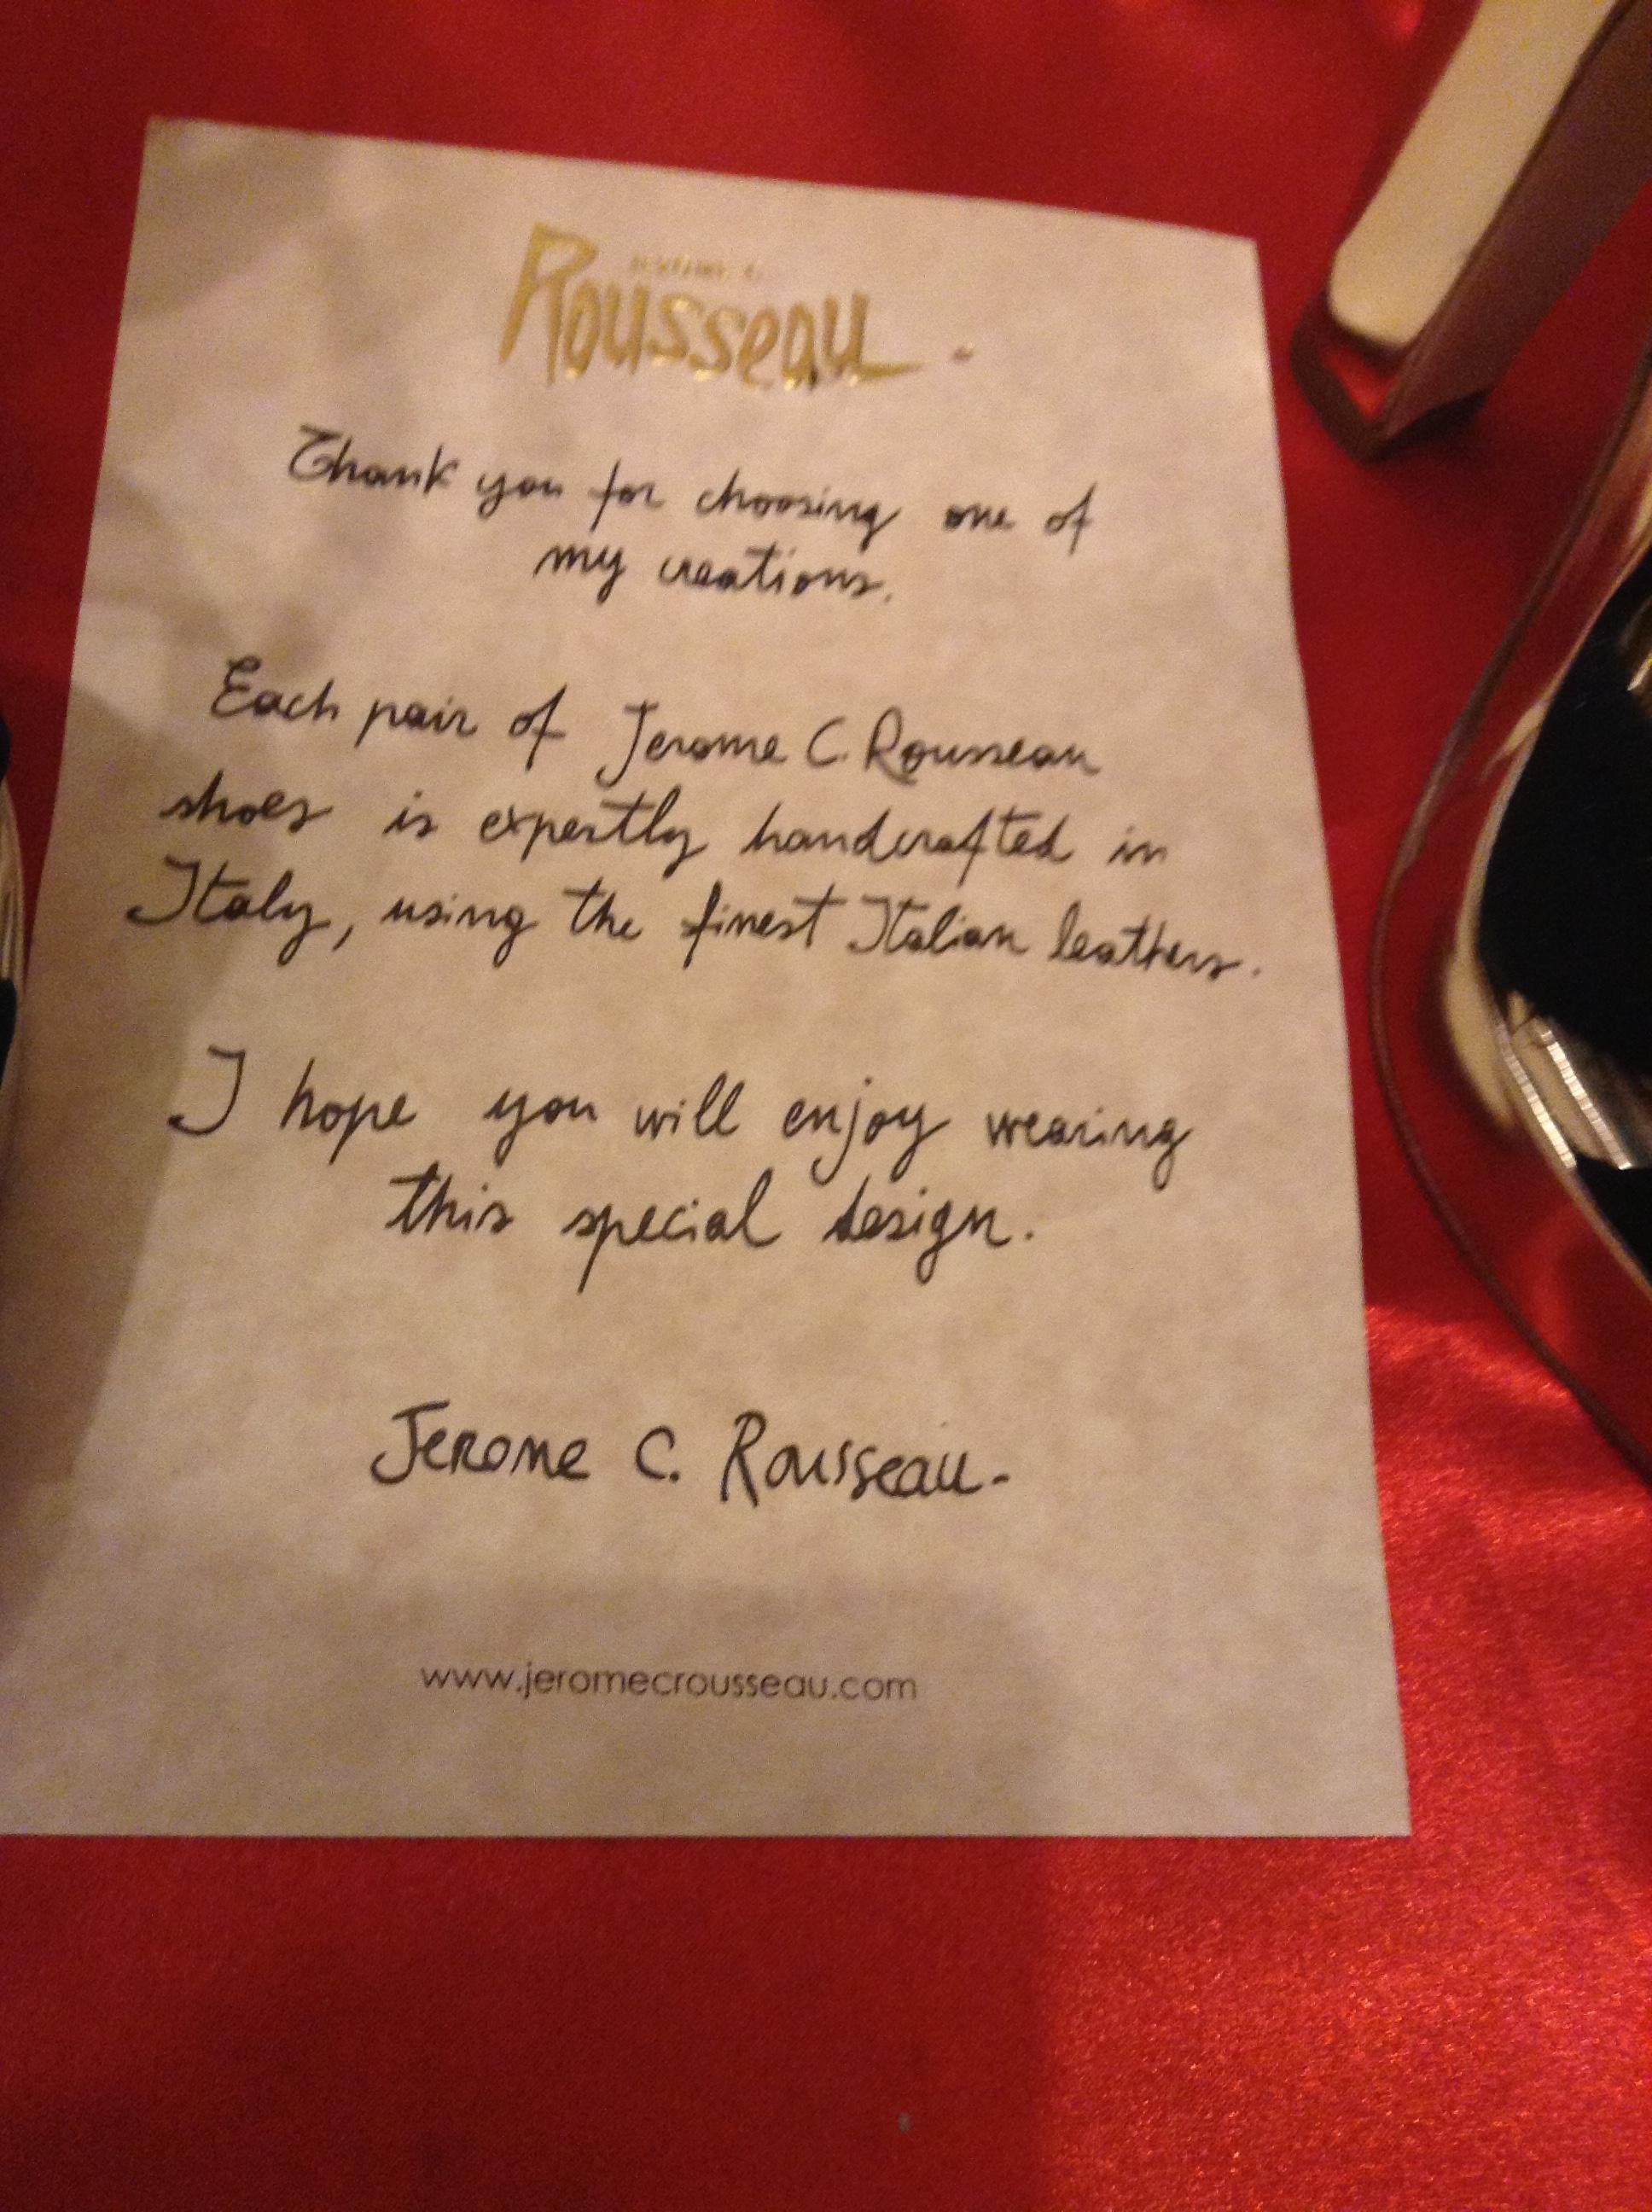 Rousseau
Thank you for choosing one of
my creations.
Each pair of Jerome C. Rousseau
shoes is expertly handcrafted in
Italy, using the finest Italian leathers.
I hope you will enjoy wearing
this special design.
Jerome C. Rousseau-
www.jeromecrousseau.com